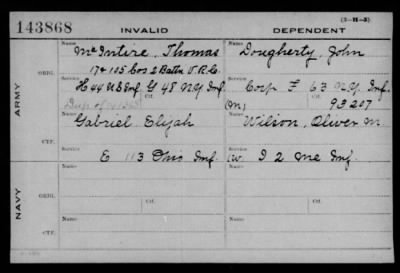 (3-11-3)
143868
INVALID
DEPENDENT
ARMY
NAVY
ORIG.
CTF.
ORIG.
CTF.
Name
McIntire, Thomas
Service
17 & 105 Cos 2 Batn V.R.C.
H 44 U.S. Inf. G 48 N.Y. Inf.
Name
Gabriel, Elijah
Service
E 113 Ohio Inf.
Name
Dougherty, John
Service
Corp F 63 N.Y. Inf.
Ctf.
(M) 93207
Name
Wilson, Oliver M.
Service
(W) I 2 Me Inf.
Name
Ctf.
Service
Name
Ctf.
Service
Name
Service
Name
Service